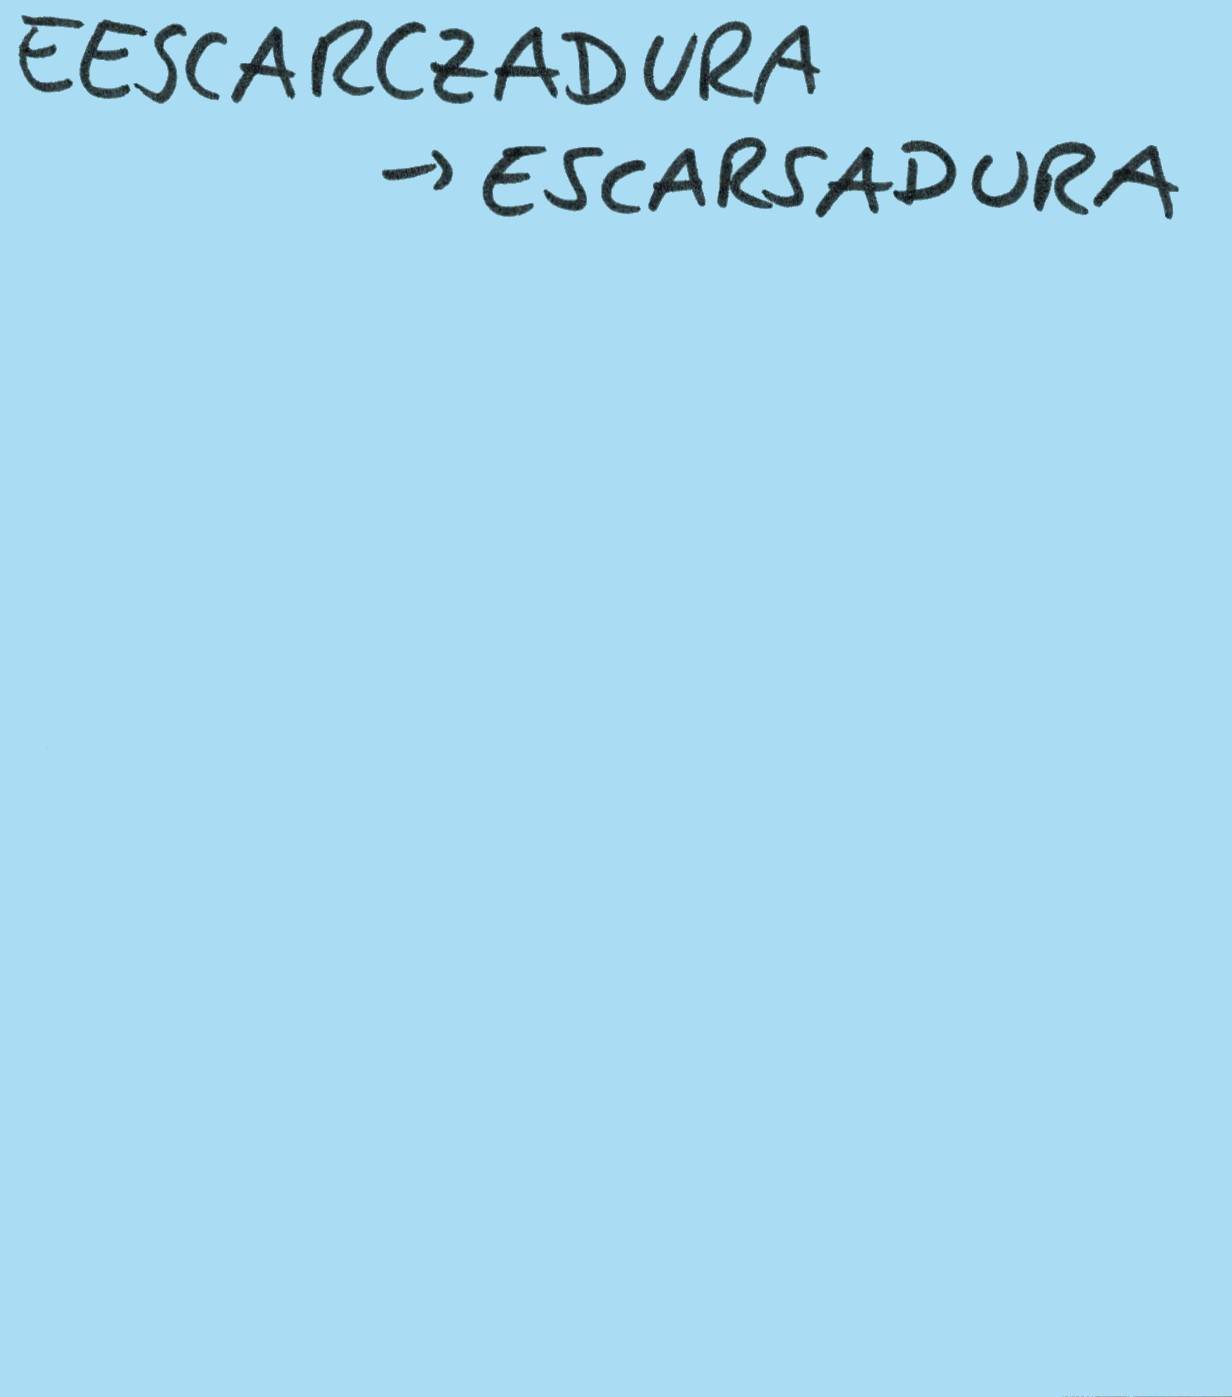 EESCARCZADURA
→ ESCARSADURA